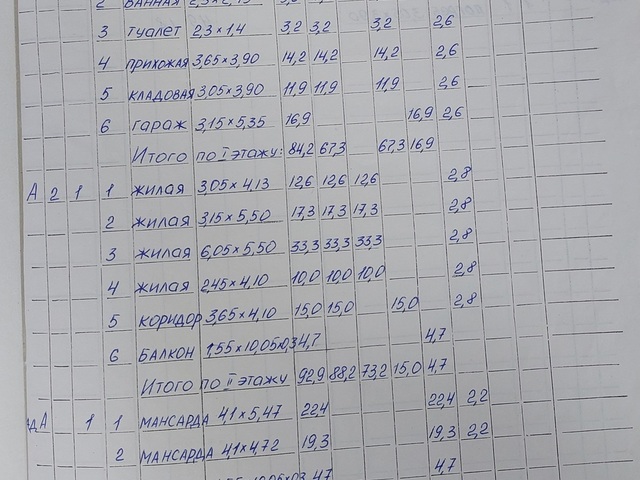 2 ВАННАЯ
3 туалет 2,3×1,4 3,2 3,2 3,2 2,6
4 прихожая 3,65×3,90 14,2 14,2 14,2 2,6
5 кладовая 3,05×3,90 11,9 11,9 11,9 2,6
6 гараж 3,15×5,35 16,9 16,9 2,6
Итого по I этажу: 84,2 67,3 67,3 16,9
А 2 1 1 жилая 3,05×4,13 12,6 12,6 12,6 2,8
2 жилая 3,15×5,50 17,3 17,3 17,3 2,8
3 жилая 6,05×5,50 33,3 33,3 33,3 2,8
4 жилая 2,45×4,10 10,0 10,0 10,0 2,8
5 коридор 3,65×4,10 15,0 15,0 15,0 2,8
6 БАЛКОН 1,55×10,05×0,3 4,7 4,7
Итого по II этажу 92,9 88,2 73,2 15,0 4,7
А 1 1 МАНСАРДА 4,1×5,47 22,4 22,4 2,2
2 МАНСАРДА 4,1×4,72 19,3 19,3 2,2
4,7 4,7